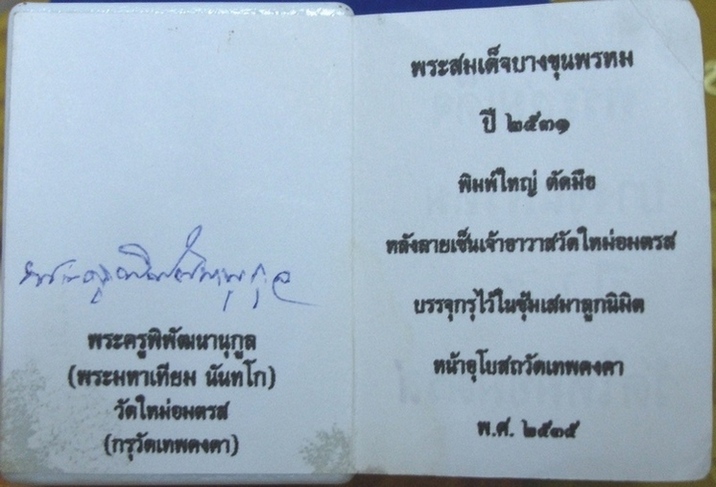 พระครูพิพัฒนานุกูล
พระครูพิพัฒนานุกูล
(พระมหาเทียม นันทโก)
วัดใหม่อมตรส
(กรุวัดเทพคงคา)
พระสมเด็จบางขุนพรหม
ปี ๒๕๓๑
พิมพ์ใหญ่ ตัดมือ
หลังลายเซ็นเจ้าอาวาสวัดใหม่อมตรส
บรรจุกรุไว้ในซุ้มเสมาลูกนิมิต
หน้าอุโบสถวัดเทพคงคา
พ.ศ. ๒๕๓๕